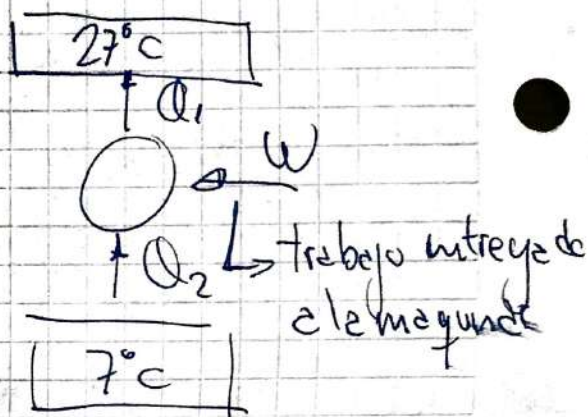 27°C
Q₁
W
Q₂
trabajo entregado
a la maquina
7°C